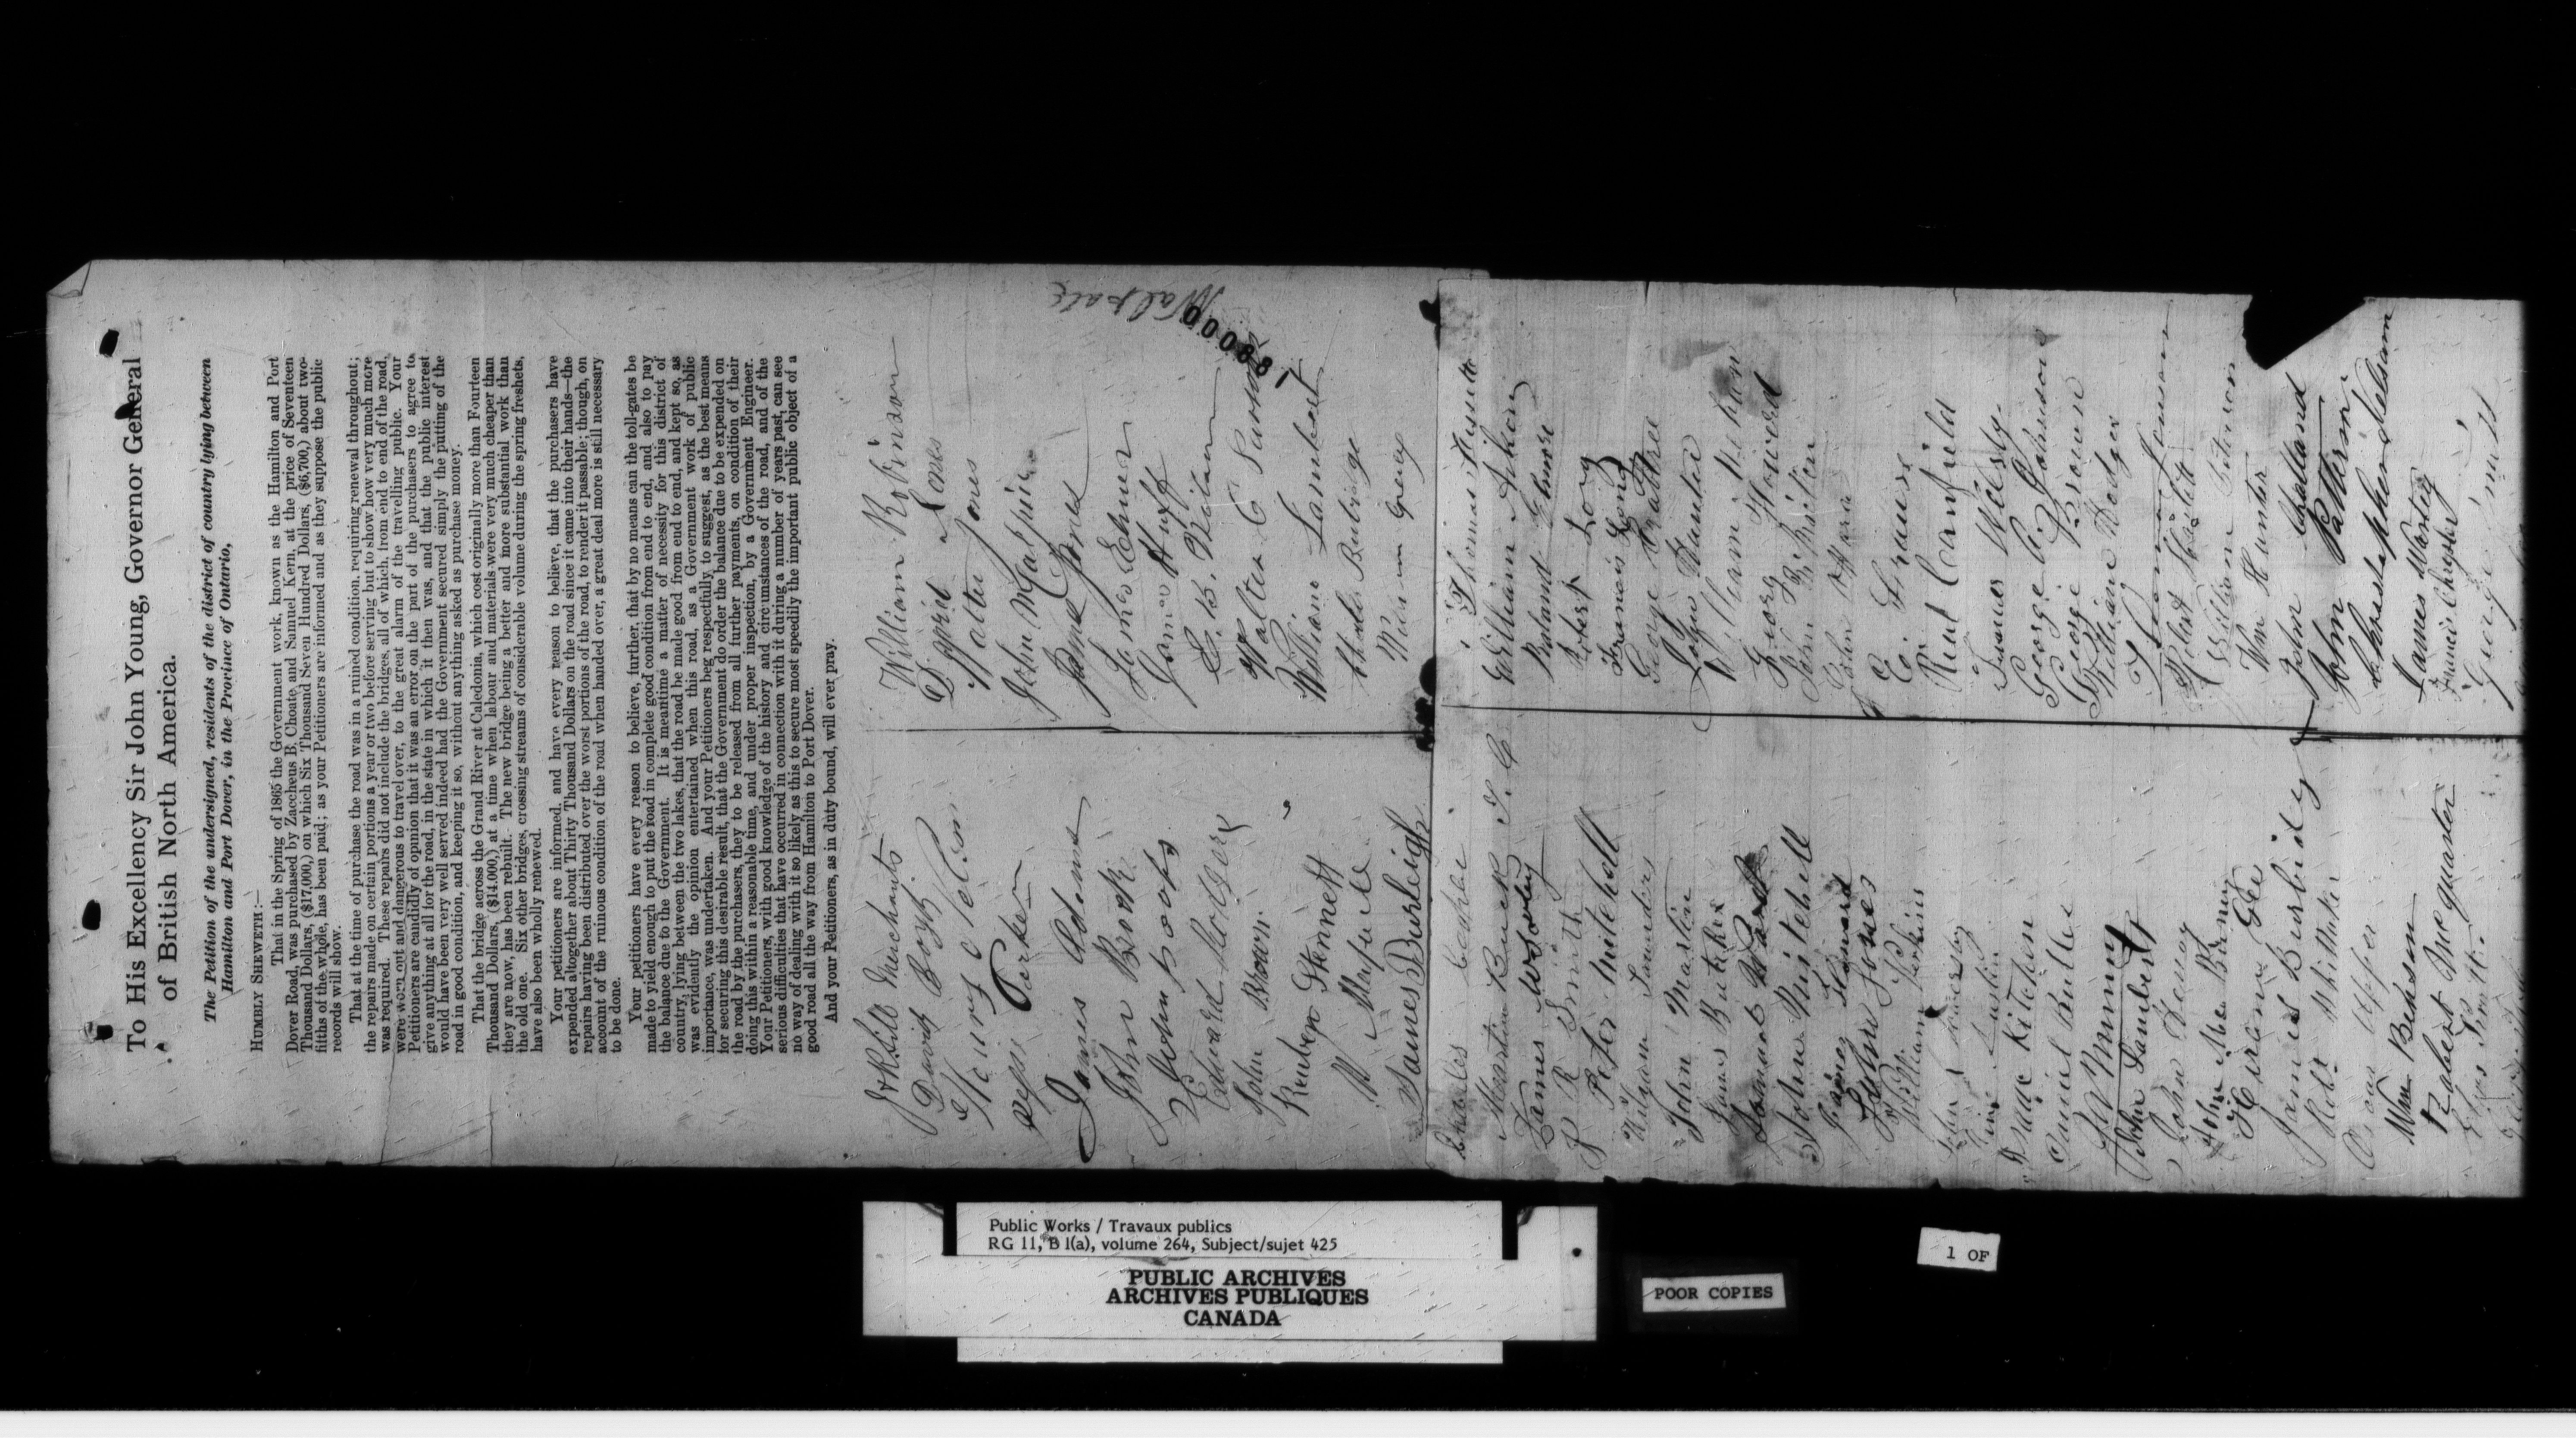 To His Excellency Sir John Young, Governor General
of British North America.
The Petition of the undersigned, residents of the district of country lying between
Hamilton and Port Dover, in the Province of Ontario,
HUMBLY SHEWETH:—
That in the Spring of 1865 the Government work, known as the Hamilton and Port
Dover Road, was purchased by Zaccheus B. Choate, and Samuel Kern, at the price of Seventeen
Thousand Dollars, ($17,000,) on which Six Thousand Seven Hundred Dollars, ($6,700,) about two-
fifths of the whole, has been paid; as your Petitioners are informed and as they suppose the public
records will show.
That at the time of purchase the road was in a ruined condition, requiring renewal throughout;
the repairs made on certain portions a year or two before serving but to show how very much more
was required. These repairs did not include the bridges, all of which, from end to end of the road,
were worn out and dangerous to travel over, to the great alarm of the travelling public. Your
Petitioners are candidly of opinion that it was an error on the part of the purchasers to agree to
give anything at all for the road, in the state in which it then was, and that the public interest
would have been very well served indeed had the Government secured simply the putting of the
road in good condition, and keeping it so, without anything asked as purchase money.
That the bridge across the Grand River at Caledonia, which cost originally more than Fourteen
Thousand Dollars, ($14,000,) at a time when labour and materials were very much cheaper than
they are now, has been rebuilt. The new bridge being a better and more substantial work than
the old one. Six other bridges, crossing streams of considerable volume during the spring freshets,
have also been wholly renewed.
Your petitioners are informed, and have every reason to believe, that the purchasers have
expended altogether about Thirty Thousand Dollars on the road since it came into their hands—the
repairs having been distributed over the worst portions of the road, to render it passable; though, on
account of the ruinous condition of the road when handed over, a great deal more is still necessary
to be done.
Your petitioners have every reason to believe, further, that by no means can the toll-gates be
made to yield enough to put the road in complete good condition from end to end, and also to pay
the balance due to the Government. It is meantime a matter of necessity for this district of
country, lying between the two lakes, that the road be made good from end to end, and kept so, as
was evidently the opinion entertained when this road, as a Government work of public
importance, was undertaken. And your Petitioners beg respectfully to suggest, as the best means
for securing this desirable result, that the Government do order the balance due to be expended on
the road by the purchasers, they to be released from all further payments, on condition of their
doing this within a reasonable time, and under proper inspection, by a Government Engineer.
Your Petitioners, with good knowledge of the history and circumstances of the road, and of the
serious difficulties that have occurred in connection with it during a number of years past, can see
no way of dealing with it so likely as this to secure most speedily the important public object of a
good road all the way from Hamilton to Port Dover.
And your Petitioners, as in duty bound, will ever pray.
Walpole
00088
Merchants
David Boyd
Henry Nelson
Parker
James Adams
John Book
John
Edward
John Brown
Reuben Stennett
James Burleigh
William Robinson
David Jones
Walter Jones
John McAlpine
James Jones
James Elmer
James Huff
Walter C Parsons
William Lambert
Charles Buttridge
William Greney
Charles
Martin Buck
James Wooley
P R Smith
Peter Mitchell
William Saunders
John Martin
James Butcher
John Mitchell
James Howard
John Jones
William Perkins
Isaac Kitchen
Daniel Buttler
John Lambert
John
John McBurney
Hiram Gee
James Burbidge
Robt Whittaker
Wm Benson
Robert McQuarter
Thomas
William Atkins
Roland Gilmore
Robert Long
Francis Long
George Crabtree
John Hunter
William Mehan
George Howerd
John O'Mara
Rient Canfield
George A. Johnson
George Brown
William Dodger
Robert Haslett
William Peterson
Wm Hunter
John Challand
John Patterson
Christopher Nelson
James Wasley
Francis Chrysler
George Smith
Public Works / Travaux publics
RG 11, B 1(a), volume 264, Subject/sujet 425
PUBLIC ARCHIVES
ARCHIVES PUBLIQUES
CANADA
POOR COPIES
1 OF